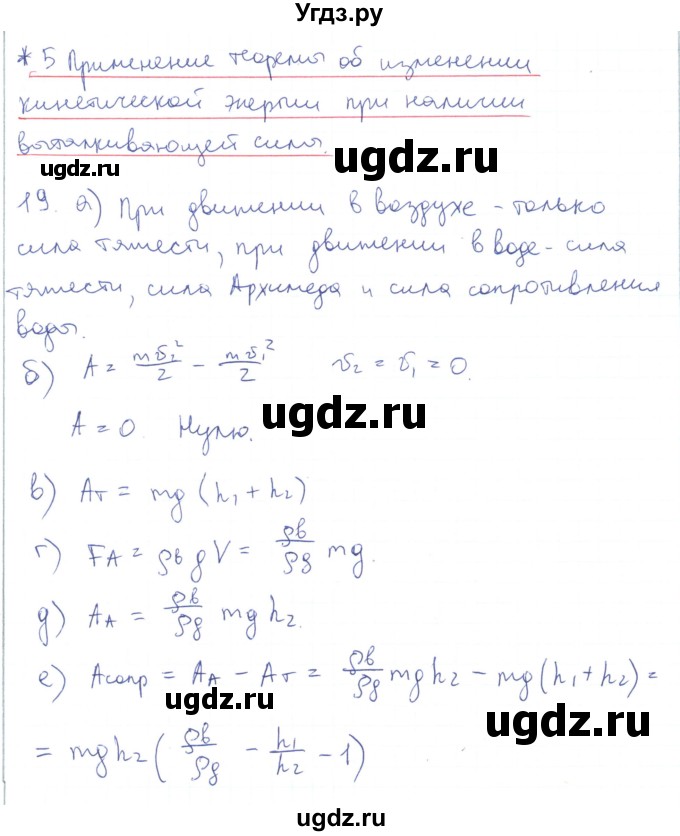 Угдз.ру
* 5 Применение теоремы об изменении
кинетической энергии при наличии
выталкивающей силы.
ugdz.ru
ugdz.ru
19. а) При движении в воздухе - только
сила тяжести, при движении в воде - сила
тяжести, сила Архимеда и сила сопротивления
воды.
б) A = mv₂²/2 - mv₁²/2 v₂ = v₁ = 0.
ugdz.ru
A = 0. Нулю.
в) Aт = mg (h₁ + h₂)
г) FA = ρв g V = ρв/ρg mg.
ugdz.ru
д) AA = ρв/ρg mg h₂.
е) Aсопр = AA - Aт = ρв/ρg mgh₂ - mg(h₁ + h₂) =
ugdz.ru
ugdz.ru
= mgh₂ (ρв/ρg - h₁/h₂ - 1)
ugdz.ru